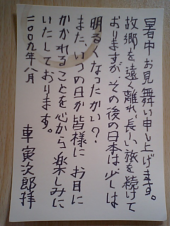 暑中お見舞い申し上げます。
故郷を遠く離れ、長い旅を続けて
おりますが、その後の日本は少しは
明るくなったかい？
また、いつの日か皆様にお目に
かかれることを心から楽しみに
いたしております。
二〇〇九年八月
車寅次郎拝